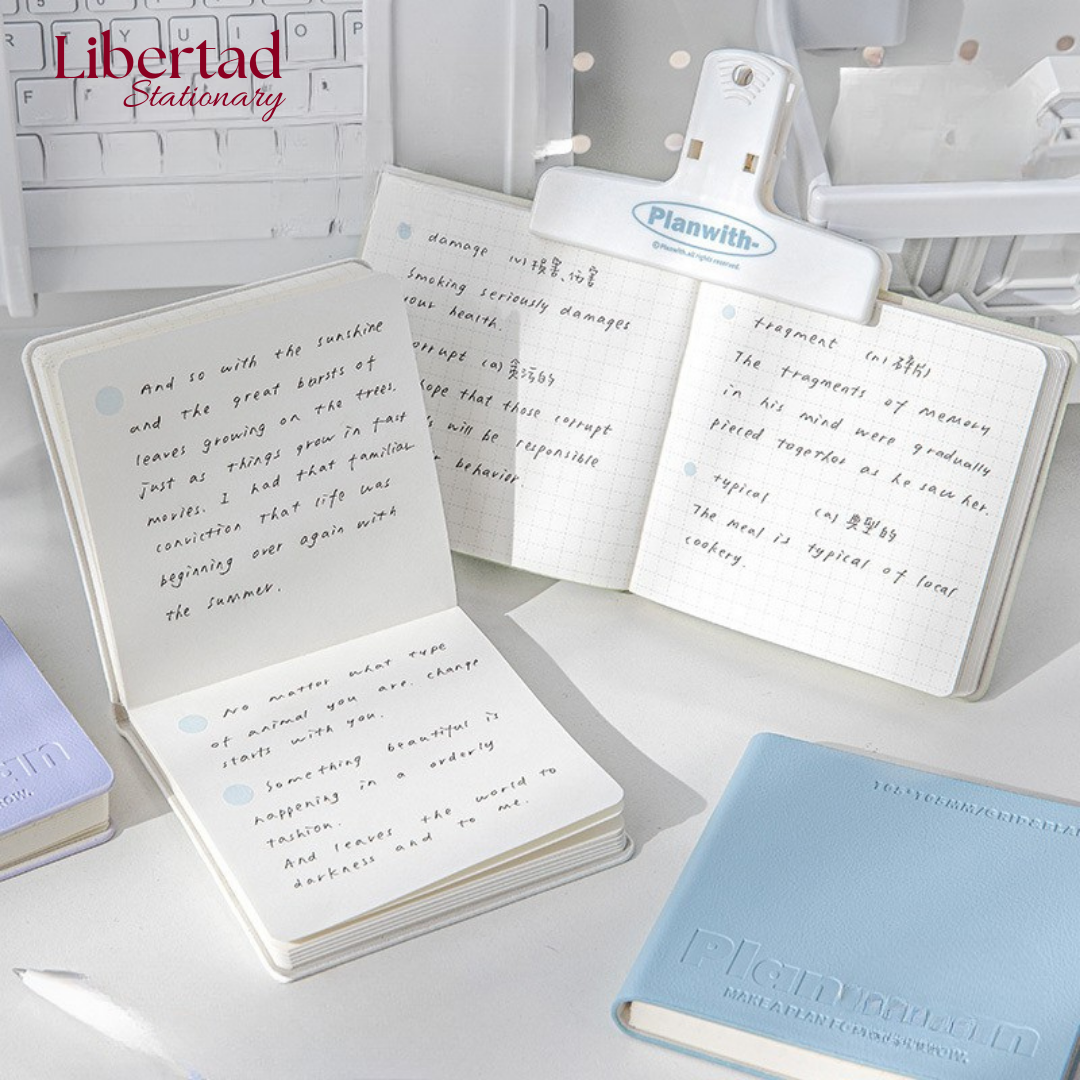 Libertad
Stationary
Planwith-
©Planwith.all rights reserved.
And so with the sunshine
and the great bursts of
leaves growing on the trees.
just as things grow in fast
movies. I had that familiar
conviction that life was
beginning over again with
the summer.
No matter what type
of animal you are. change
starts with you.
Something beautiful is
happening in a orderly
fashion.
And leaves the world to
darkness and to me.
damage (v) 損害、伤害
Smoking seriously damages
your health.
(a) 貪污的
hope that those corrupt
will be responsible
behavior.
fragment (n) 碎片
The fragments of memory
in his mind were gradually
pieced together as he saw her.
typical (a) 典型的
The meal is typical of local
cookery.
Plan
MAKE A PLAN